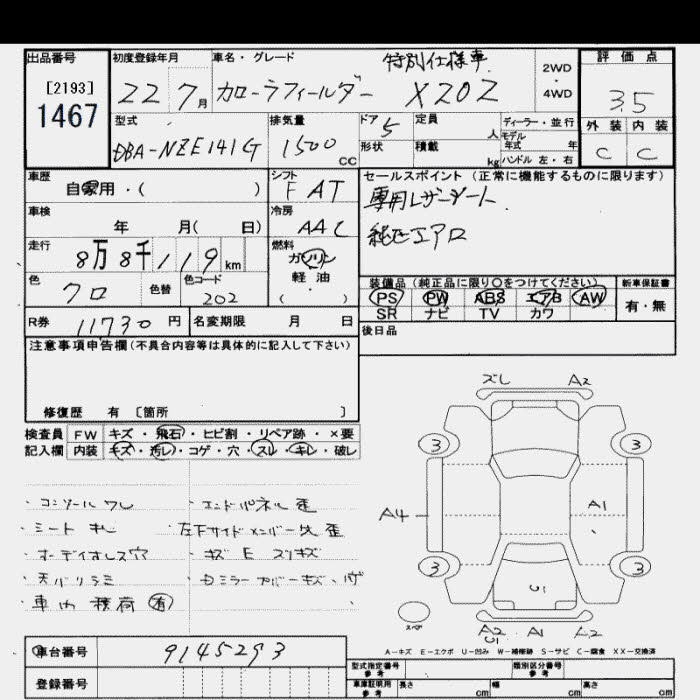 出品番号
[2193]
1467
初度登録年月
22 7月
車名・グレード
カローラフィールダー
特別仕様車
X202
2WD
・
4WD
評価点
3.5
外装 内装
C C
型式
DBA-NZE141G
排気量
1500 CC
ドア 5
定員 人
形状
積載 kg
ディーラー・並行
モデル年式 年
ハンドル 左・右
車歴
自家用・( )
シフト
F AT
車検
年 月( 日)
冷房
AAC
走行
8万8千119km
燃料
ガソリン
軽油
( ・ )
色
クロ
色替
色コード
202
R券 11730円
名変期限 月 日
セールスポイント(正常に機能するものに限ります)
専用レザーシート
純正エアロ
装備品(純正品に限り〇をつけてください)
PS PW ABS エアB AW
SR ナビ TV カワ
新車保証書
有・無
後日品
注意事項申告欄(不具合内容等は具体的に記入して下さい)
修復歴 有 〔箇所 〕
検査員 FW キズ・飛石・ヒビ割・リペア跡・×要
記入欄 内装 キズ・汚レ・コゲ・穴・スレ・キレ・破レ
・コンソールワレ
・シートキレ
・オーディオレス穴
・天バリシミ
・車内積荷有
・エンドパネル歪
・左下サイドメンバー先歪
・キズEスリキズ
・ミラーカバーキズ
ズレ A2
3 3
A4 A1
3 3
U1
スペア
A2 U1 A1
A-キズ E-エクボ U-凹み W-補修跡 S-サビ C-腐食 XX-交換済
車台番号 9145293
登録番号
型式指定番号 参考
類別区分番号 参考
車庫証明用 参考
長さ cm
幅 cm
高さ cm